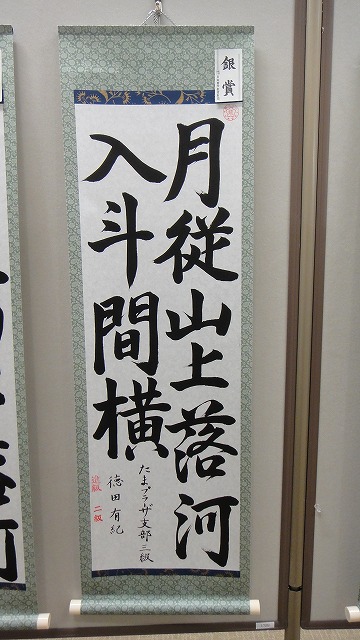 銀賞
月従山上落河
入斗間横
たまプラーザ支部三級
徳田有紀
進級 二級